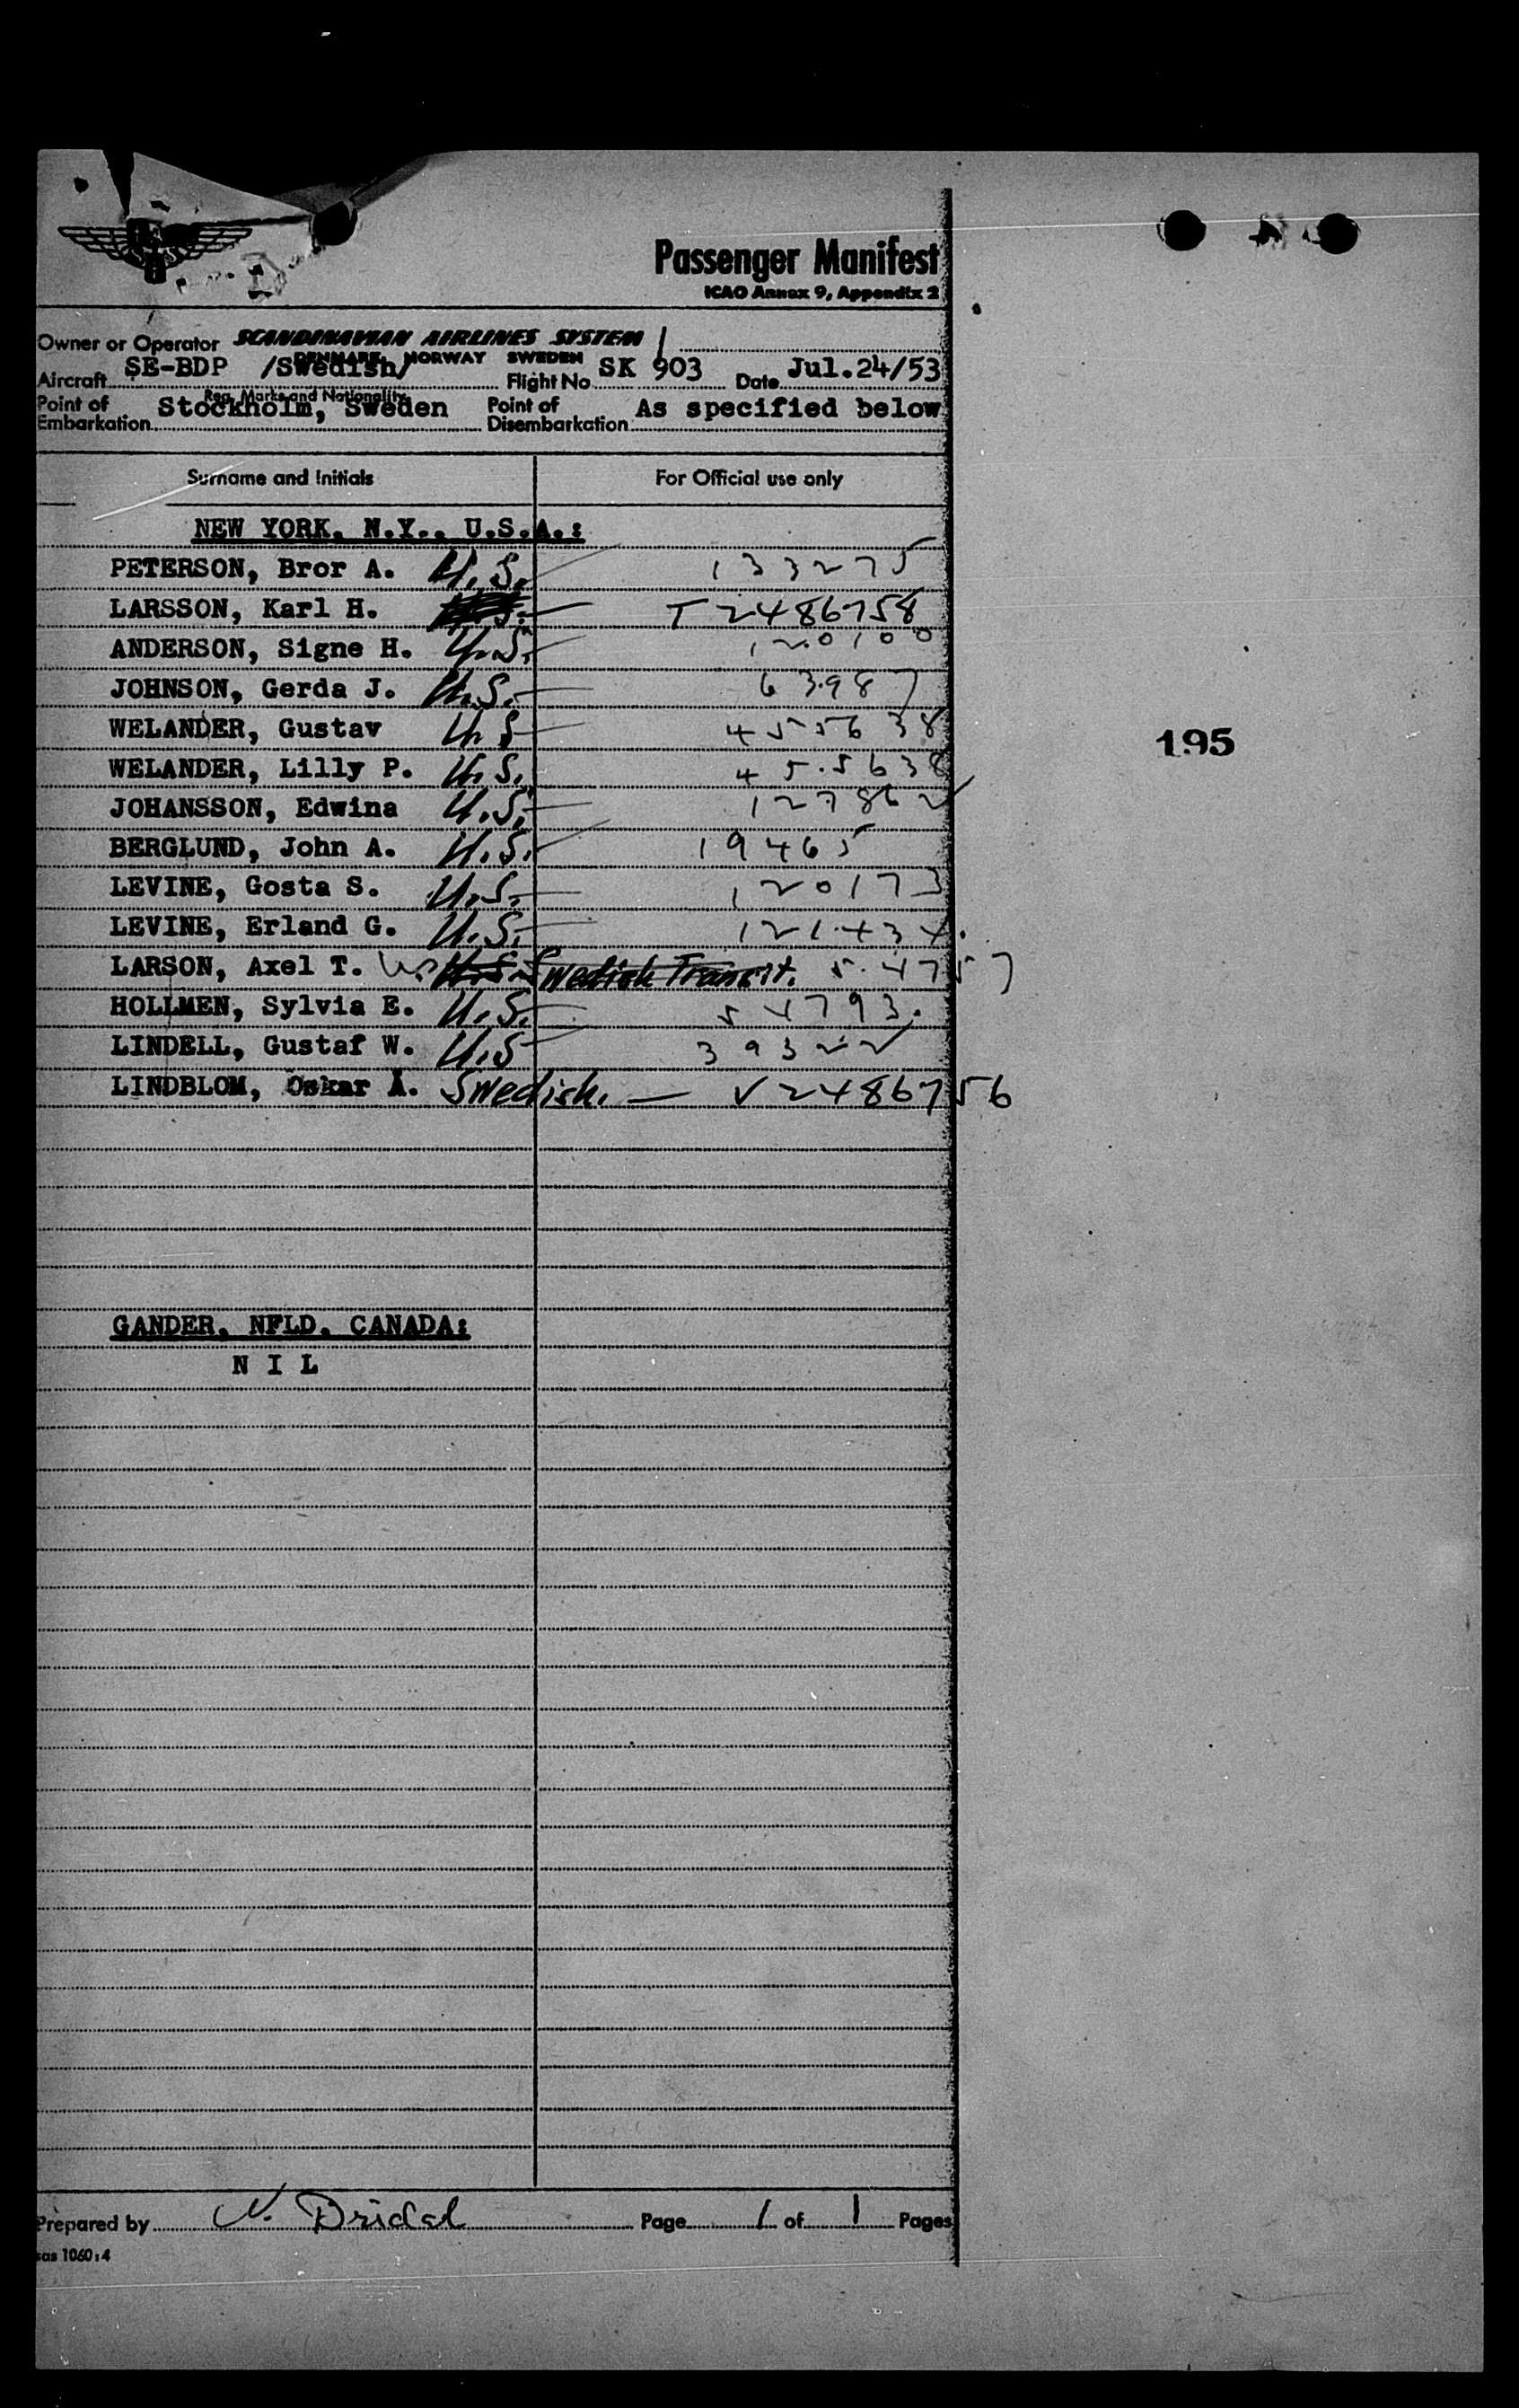 Passenger Manifest
ICAO Annex 9, Appendix 2
Owner or Operator SCANDINAVIAN AIRLINES SYSTEM
DENMARK NORWAY SWEDEN
Aircraft SE-BDP /Swedish/ Flight No SK 903 Date Jul.24/53
Reg. Marks and Nationality
Point of Embarkation Stockholm, Sweden Point of Disembarkation As specified below
Surname and Initials For Official use only
NEW YORK, N.Y., U.S.A.:
PETERSON, Bror A. U.S. 133275
LARSSON, Karl H. T 2486758
ANDERSON, Signe H. U.S. 120100
JOHNSON, Gerda J. U.S. 63987
WELANDER, Gustav U.S 455638
195
WELANDER, Lilly P. U.S. 455638
JOHANSSON, Edwina U.S. 127862
BERGLUND, John A. U.S. 19465
LEVINE, Gosta S. U.S. 120173
LEVINE, Erland G. U.S. 121434.
LARSON, Axel T. US U.S. Swedish Transit. 54757
HOLLMEN, Sylvia E. U.S. 54793.
LINDELL, Gustaf W. U.S 39322
LINDBLOM, Oskar Å. Swedish. — V2486756
GANDER, NFLD, CANADA:
N I L
Prepared by N. Dridal Page 1 of 1 Pages
sas 1060:4